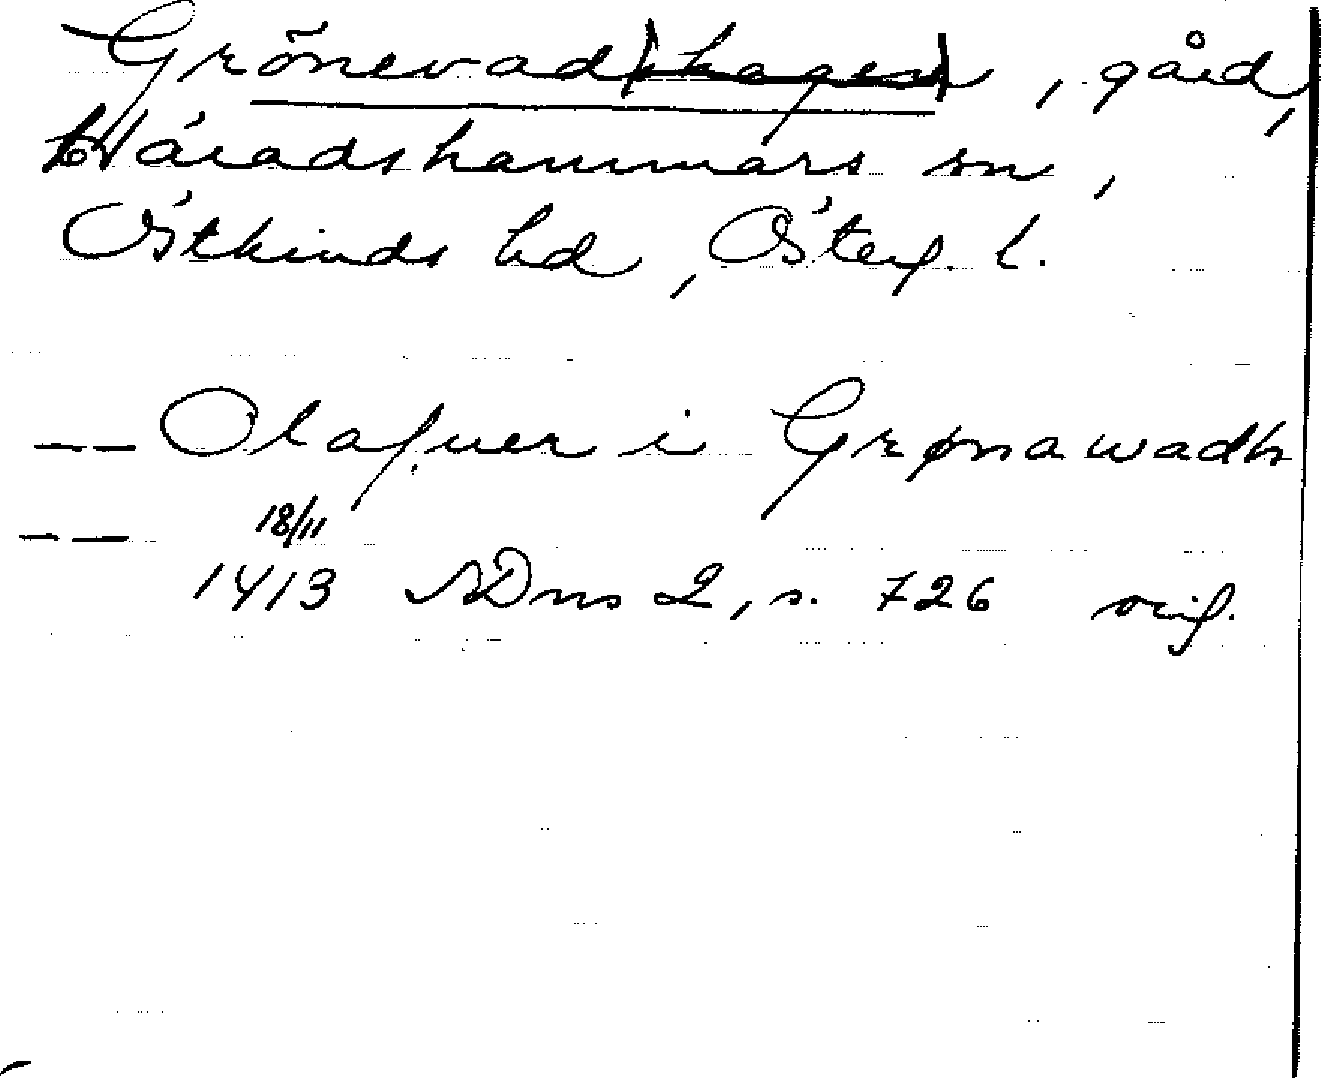 Grönevad(hagen), gård,
Häradshammars sn,
Östkinds hd, Österg. l.
— — Olafuer i Grønawadh
— — 18/11
1413 SDns 2, s. 726 orig.